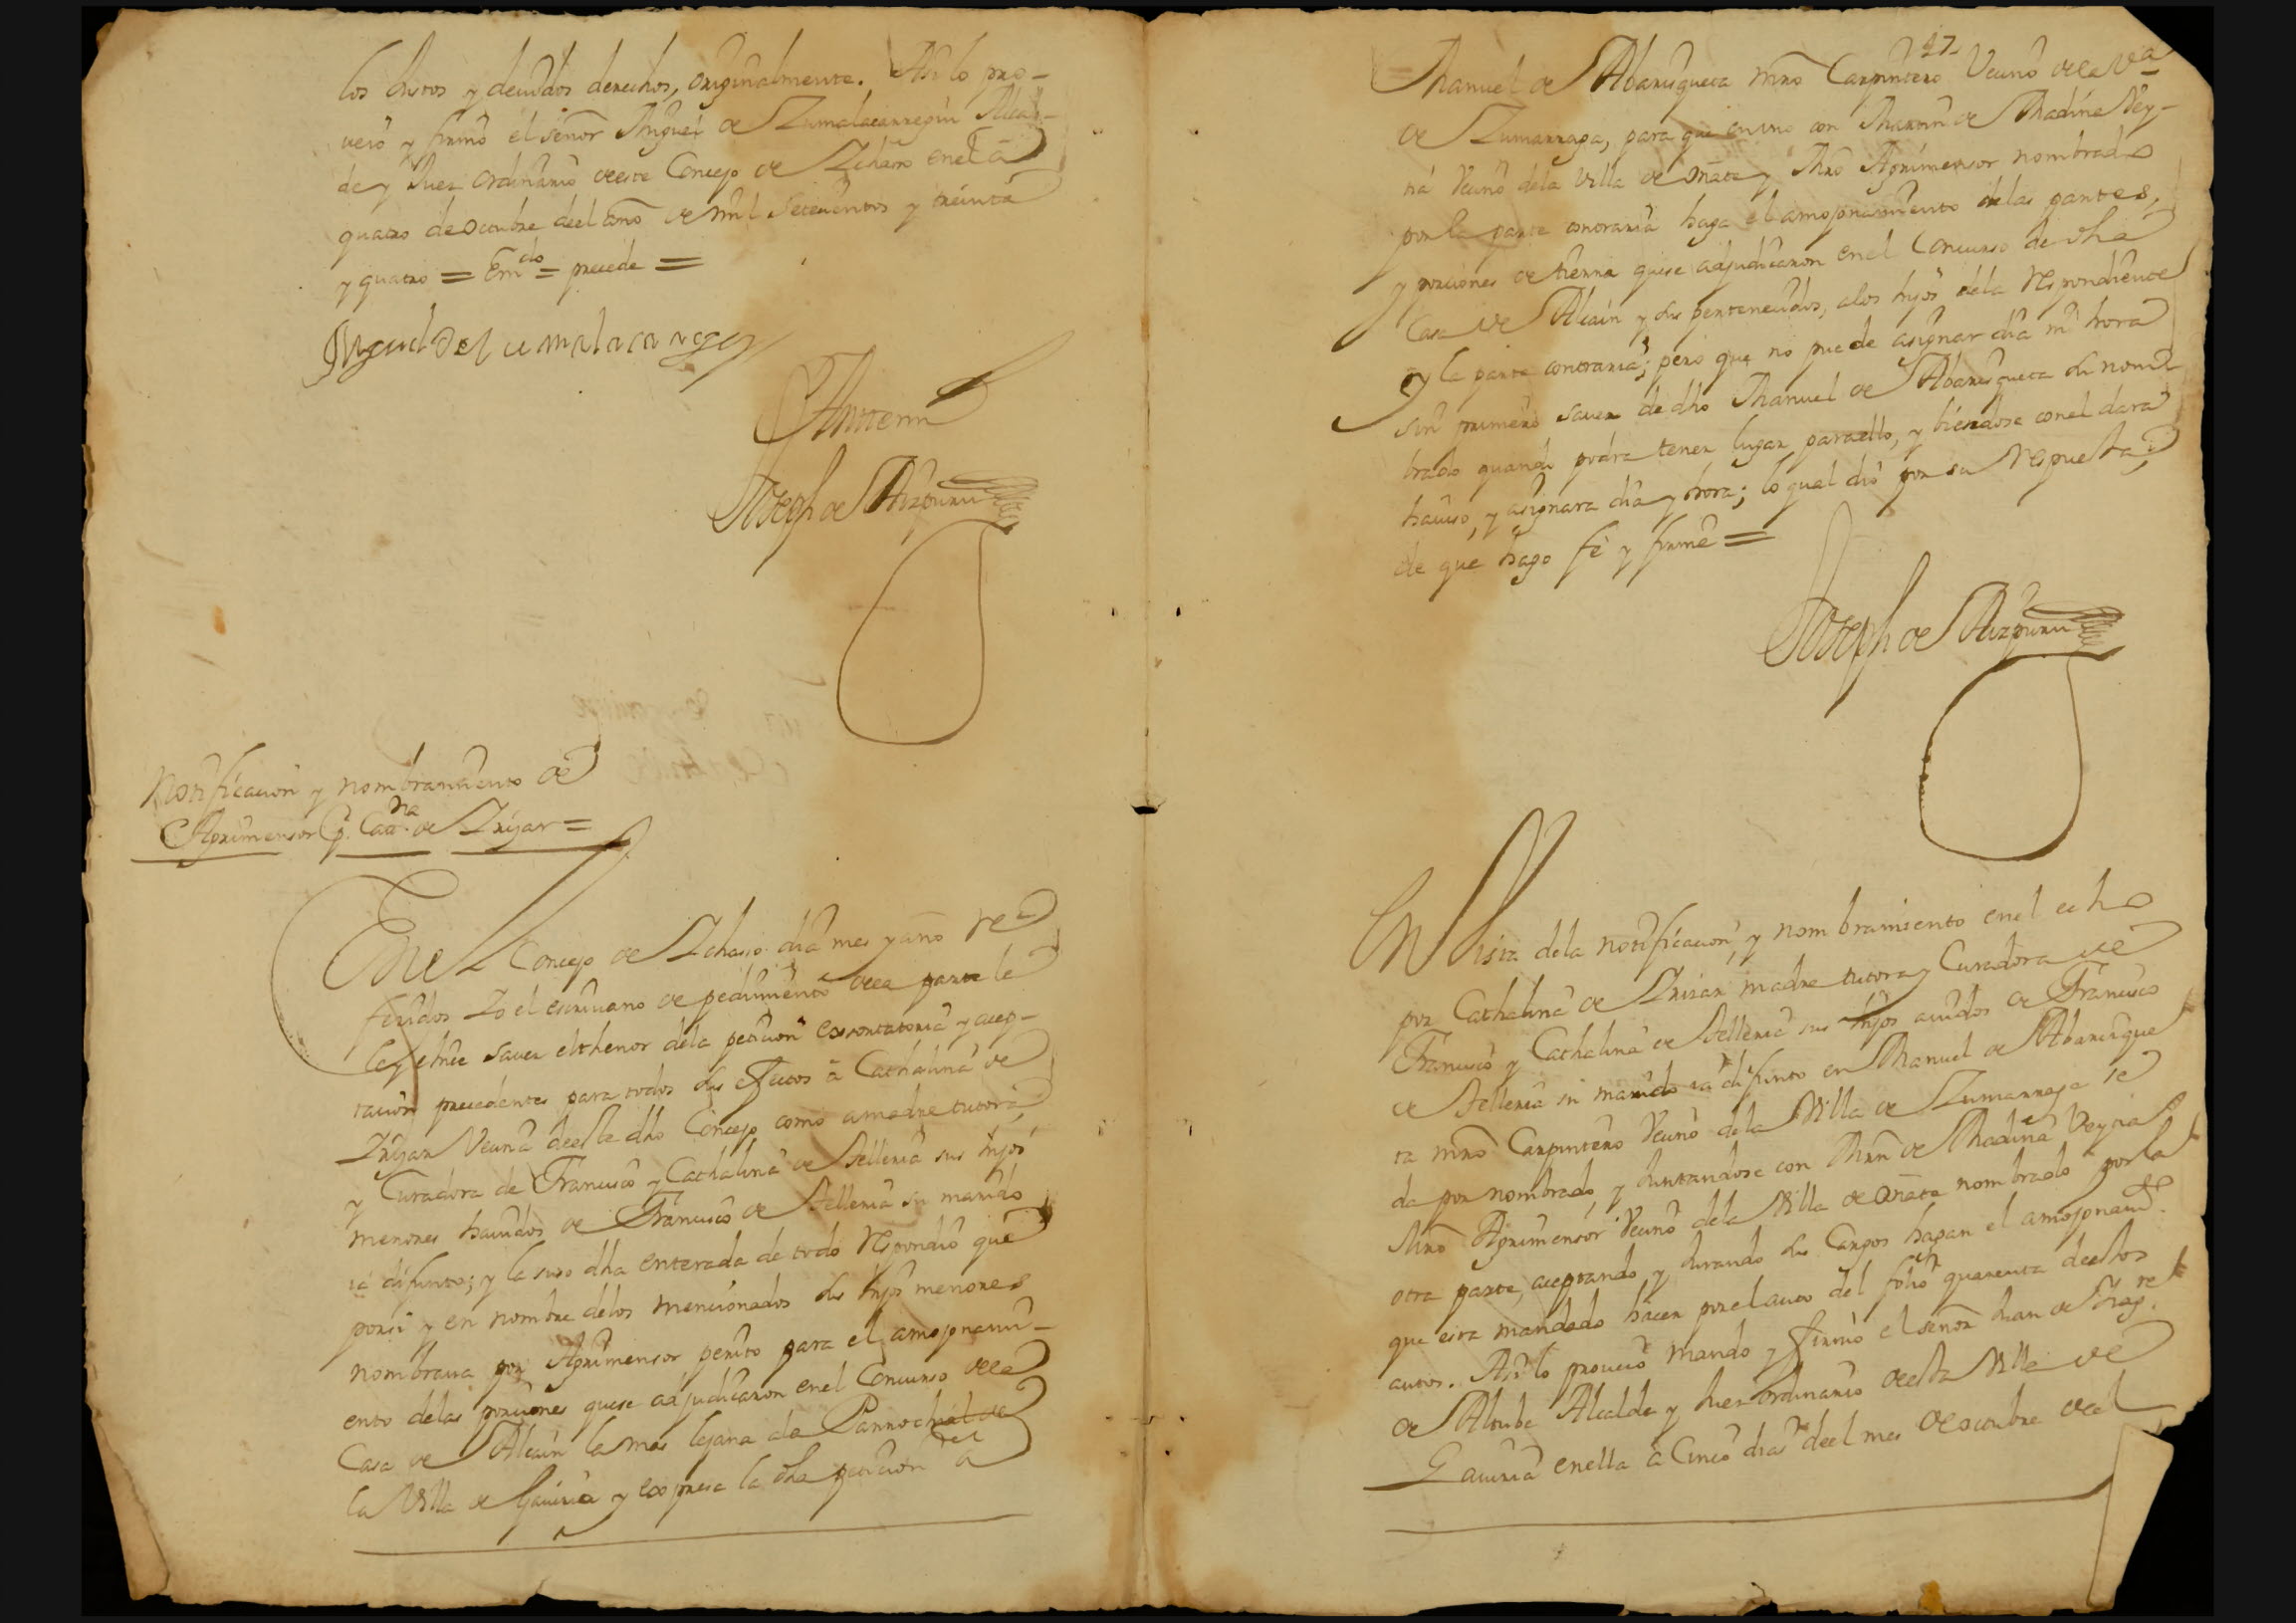 los justos y deuidos derechos, originalmente. Assi lo pro-
ueió y firmó el señor Miguel de Zumalacarregui Alcal-
de y Juez ordinario deeste Concejo de Ichaso enel a
quatro de octubre deel año de mill setecientos y treinta
y quatro = Em.do = precede =
Miguel de Çumalacarregui
Ante mi
Joseph de Aizpuru
Notificacion y nombramiento de
Agrimensor p. Cat.na de Irizar =
Enel Concejo de Ichaso dia mes y año re
feridos Yo el escriuano de pedimiento dela parte lei
ley e hice sauer el thenor dela peticion exortatoria y acep-
tacion precedentes para todos sus efectos â Cathalina de
Irizar Vecina deeste dho Concejo como a madre tutora
y Curadora de Francisco y Cathalina de Aelleria sus hijos
menores hauidos de Francisco de Aelleria su marido
iá difunto; y la suso dha enterada de todo respondió que
porsi y en nombre delos mencionados sus hijos menores
nombraua por Agrimensor perito para el amojonami-
ento delas porciones quese adjudicaron enel Concurso dela
Casa de Alcain la mas lejana dela Parrochial de
la Villa de Gauiria y expresa la dha peticion a
47
Manuel de Abarisqueta mro Carpintero Vecino dela Va
de Zumarraga, para que en vno con Martin de Madina Vey-
tia Vecino dela Villa de oñate y Mro Agrimensor nombrado
por la parte contraria haga el amojonamiento delas partes,
y porciones de tierra quese adjudicaron enel Concurso de dha
Casa de Alcain y sus pertenecidos, alos hijos dela respondiente
y la parte contraria; pero que no puede asignar dia ni hora
sin primero sauer de dho Manuel de Abarisqueta su nom-
brado quando podra tener lugar paraello, y biendose conel dara
hauiso, y asignara dia y hora; lo qual dió por su respuesta,
de que hago fé y firmé =
Joseph de Aizpuru
En Vista dela notificacion, y nombramiento enel echo
por Cathalina de Irizar madre tutora y Curadora de
Francisco y Cathalina de Aelleria sus hijos auidos de Francisco
de Aelleria su marido iá difunto en Manuel de Abarisque
ta mro Carpintero Vecino dela Villa de Zumarraga se
da por nombrado, y juntandose con Mrn de Madina Veytia
Mro Agrimensor Vecino dela Villa de oñate nombrado por la
otra parte, aceptando y jurando sus Cargos hagan el amojonam.to
que esta mandado hacer porel auto del folio quarenta deestos
autos. Assi lo proueió mando y firmó el señor Juan de
de Altube Alcalde y Juez ordinario deesta Villa de
Gauiria enella â Cinco dias deel mes de octubre deel